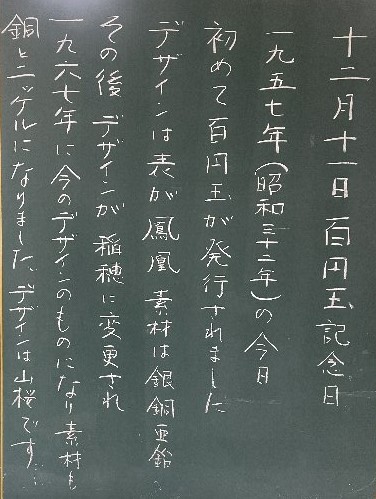 十二月十一日百円玉記念日
一九五七年(昭和三十二年)の今日
初めて百円玉が発行されました
デザインは表が鳳凰素材は銀銅亜鉛
その後デザインが稲穂に変更され
一九六七年に今のデザインのものになり素材も
銅とニッケルになりました、デザインは山桜です